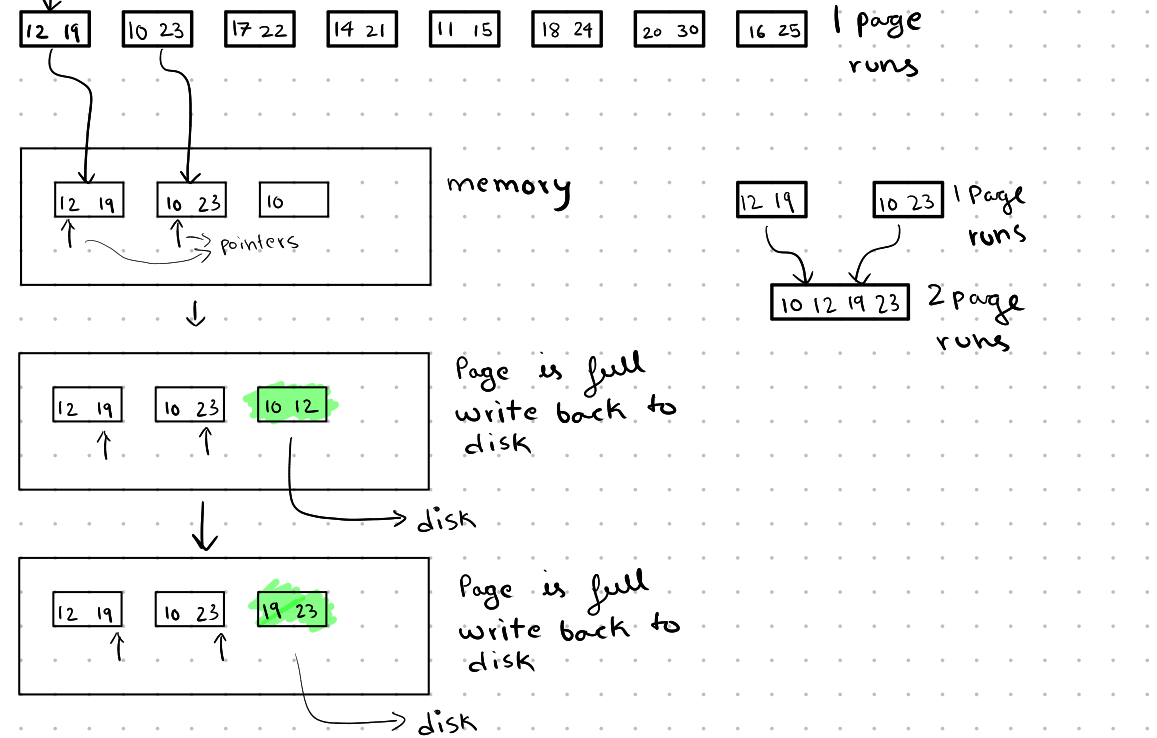 12 19 10 23 17 22 14 21 11 15 18 24 20 30 16 25 1 page
runs
12 19 10 23 10 memory
pointers
12 19 10 23 1 Page
runs
10 12 19 23 2 page
runs
12 19 10 23 10 12
Page is full
write back to
disk
disk
12 19 10 23 19 23
Page is full
write back to
disk
disk